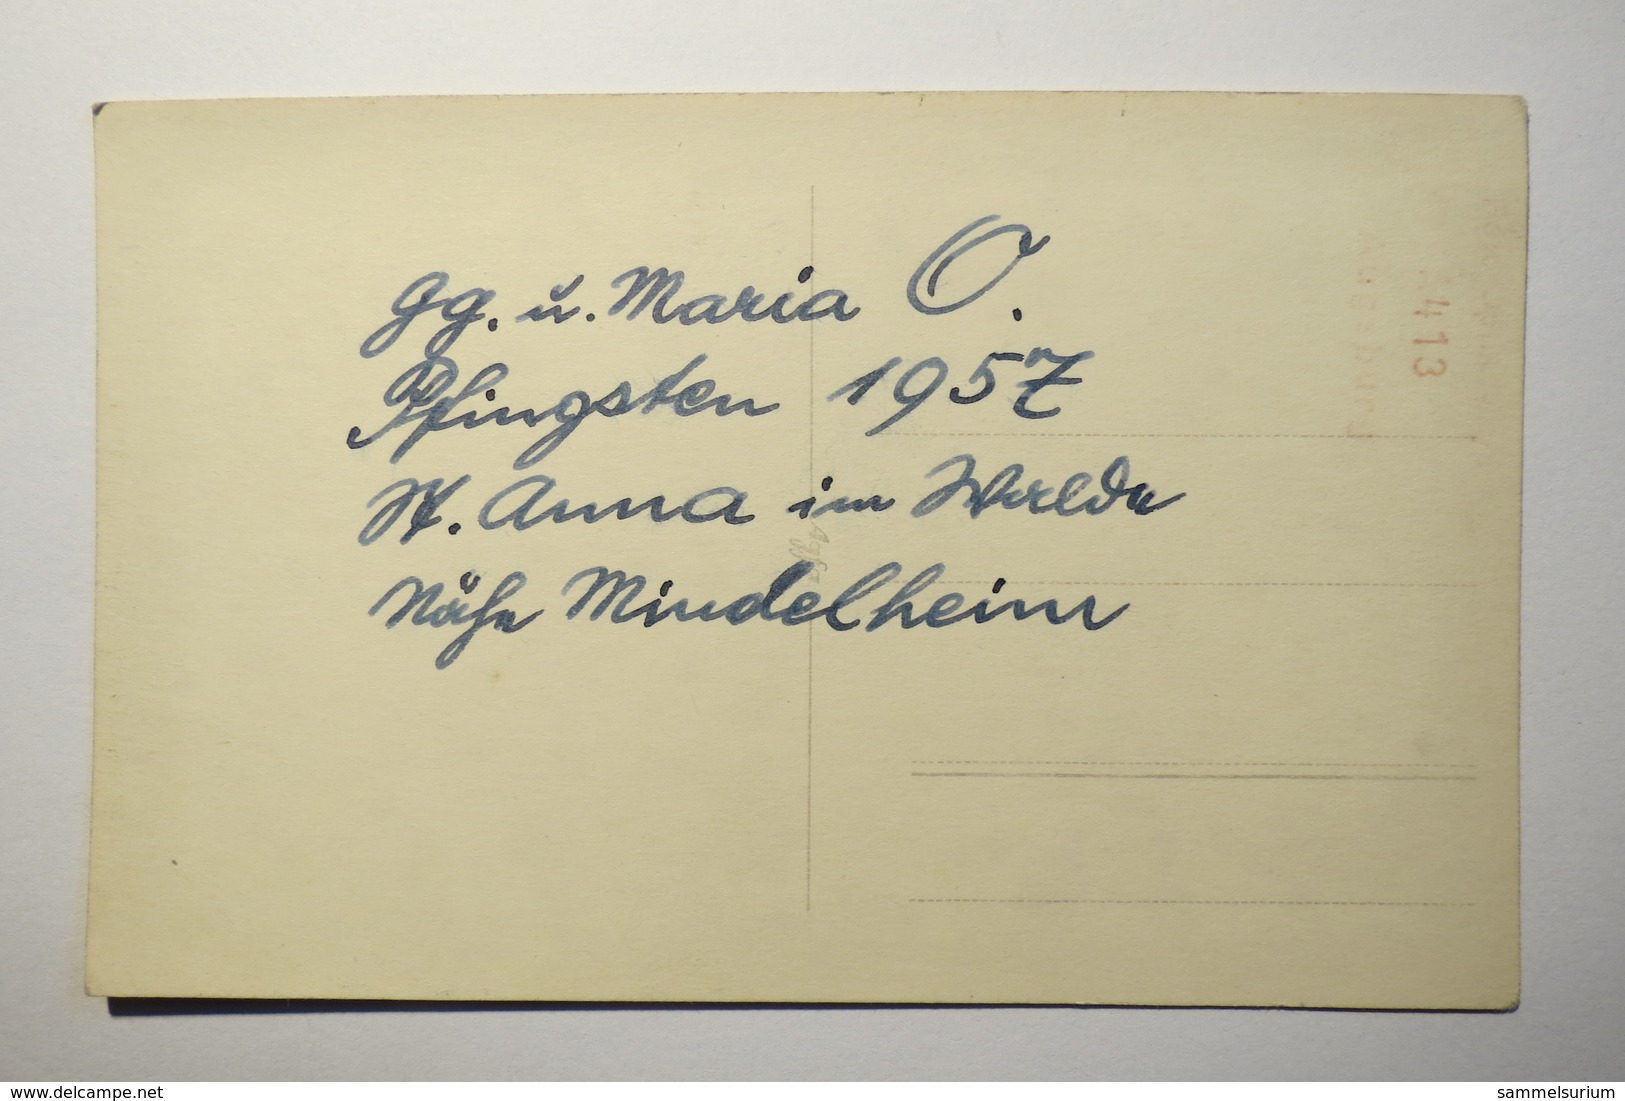 Gg. u. Maria O.
Pfingsten 1957
St. Anna im Walde
Nähe Mindelheim
Agfa
Augsburg
413
www.delcampe.net
sammelsurium